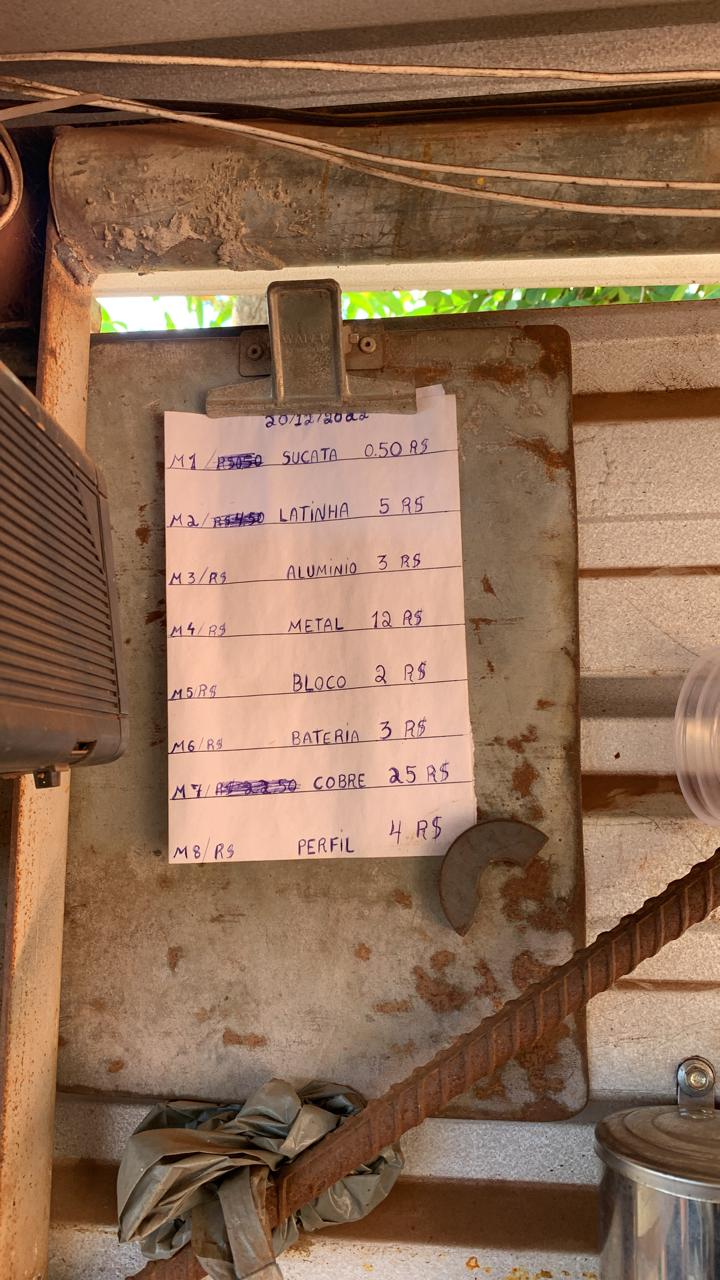 20/12/2022
M1/ SUCATA 0.50 R$
M2/ LATINHA 5 R$
M3/R$ ALUMINIO 3 R$
M4/R$ METAL 12 R$
M5/R$ BLOCO 2 R$
M6/R$ BATERIA 3 R$
M7/ COBRE 25 R$
M8/R$ PERFIL 4 R$